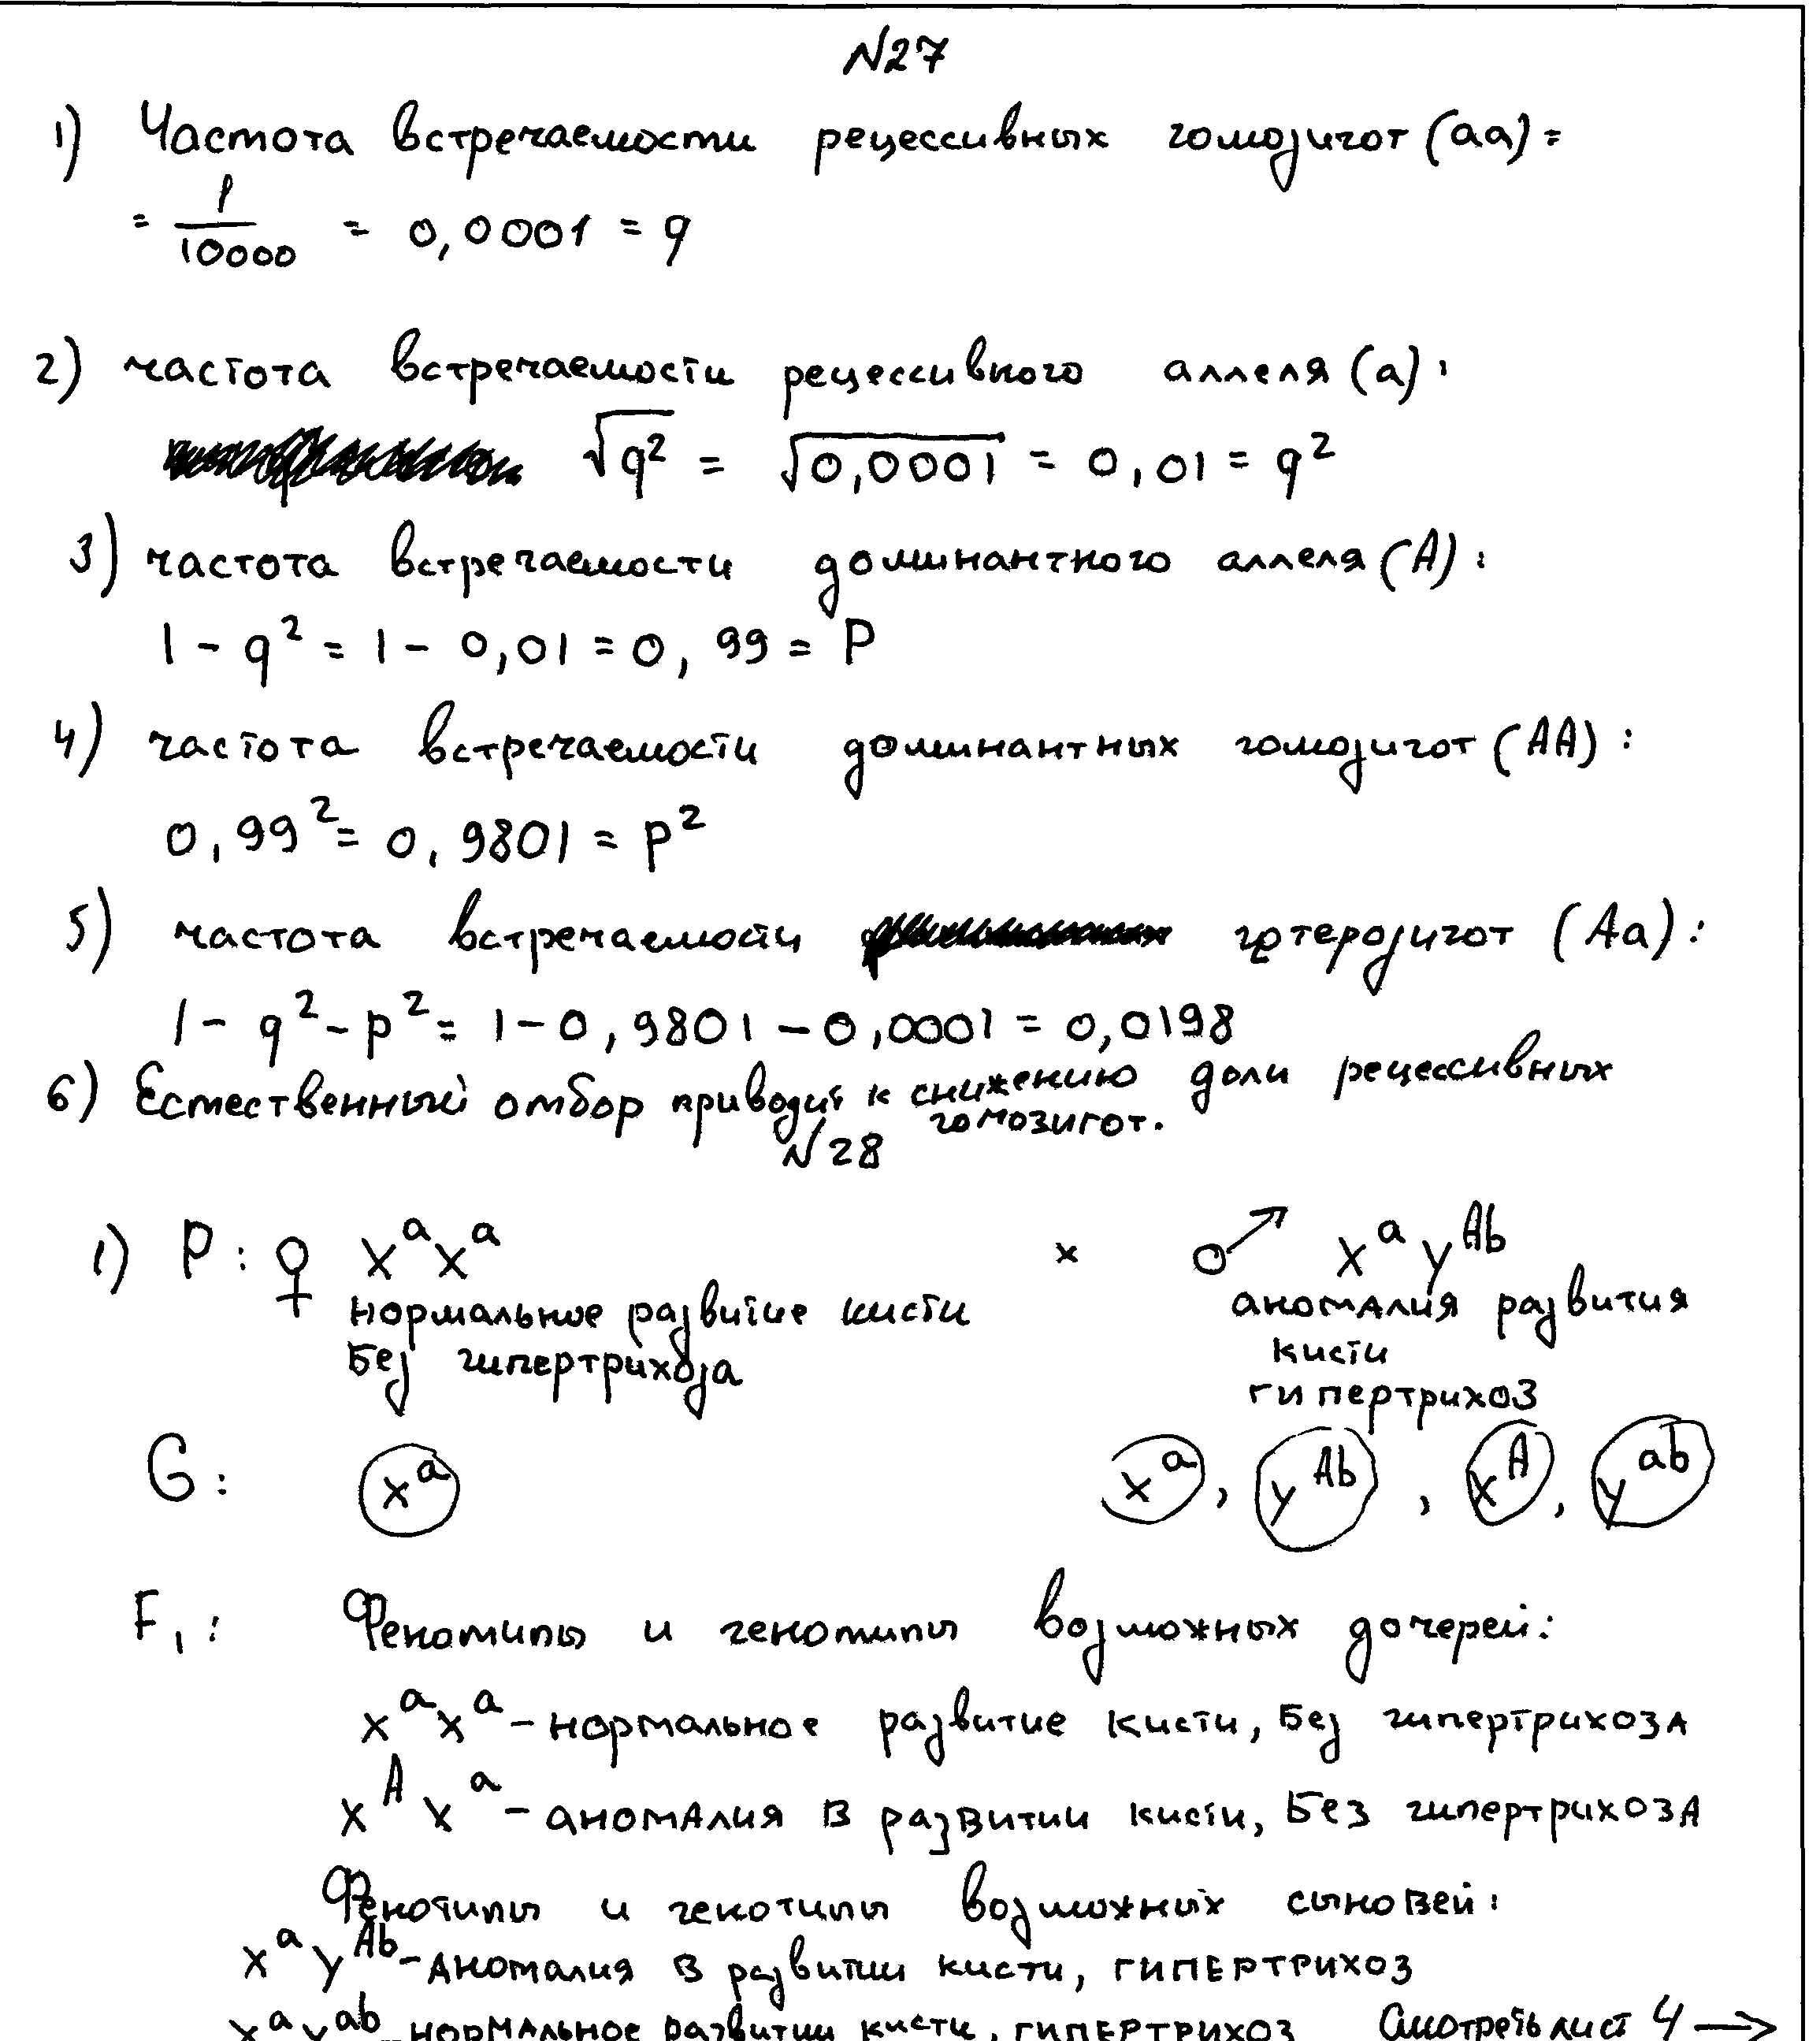 N27
1) Частота встречаемости рецессивных гомозигот (aa) =
= 1/10000 = 0,0001 = q
2) частота встречаемости рецессивного аллеля (a):
√q² = √0,0001 = 0,01 = q²
3) частота встречаемости доминантного аллеля (A):
1 - q² = 1 - 0,01 = 0,99 = P
4) частота встречаемости доминантных гомозигот (AA):
0,99² = 0,9801 = p²
5) частота встречаемости гетерозигот (Aa):
1 - q² - p² = 1 - 0,9801 - 0,0001 = 0,0198
6) Естественный отбор приводит к снижению доли рецессивных
гомозигот.
N28
1) P: ♀ XᵃXᵃ × ♂ XᵃYᴬᵇ
нормальное развитие кисти аномалия развития
Без гипертрихоза кисти
гипертрихоз
G: Xᵃ Xᵃ, Yᴬᵇ, Xᴬ, Yᵃᵇ
F₁: Фенотипы и генотипы возможных дочерей:
XᵃXᵃ - нормальное развитие кисти, Без гипертрихоза
XᴬXᵃ - аномалия в развитии кисти, Без гипертрихоза
Фенотипы и генотипы возможных сыновей:
XᵃYᴬᵇ - Аномалия в развитии кисти, гипертрихоз
XᵃYᵃᵇ - нормальное развитии кисти, гипертрихоз Смотреть лист 4 →